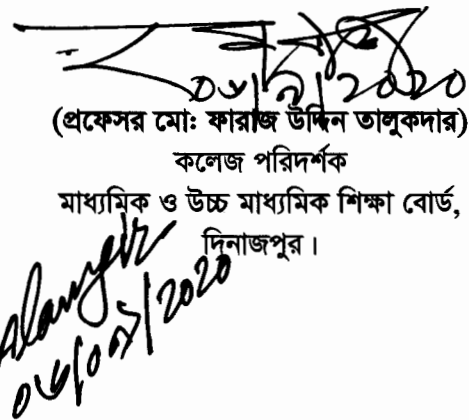 ০৬/৯/২০২০
(প্রফেসর মো: ফারাজ উদ্দিন তালুকদার)
কলেজ পরিদর্শক
মাধ্যমিক ও উচ্চ মাধ্যমিক শিক্ষা বোর্ড,
দিনাজপুর।
Alamgir
০৬/০৯/২০২০